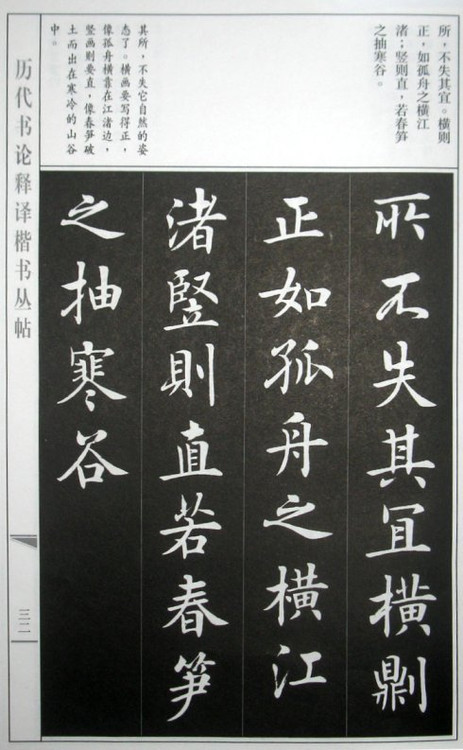 所，不失其宜。横则
正，如孤舟之横江
渚；竖则直，若春笋
之抽寒谷。
其所，不失它自然的姿
态了。横画要写得正，
像孤舟横靠在江渚边，
竖画则要直，像春笋破
土而出在寒冷的山谷
中。
所不失其宜橫鼎
正如孤舟之橫江
渚竪則直若春笋
之抽寒谷
历代书论释译楷书丛帖
三二